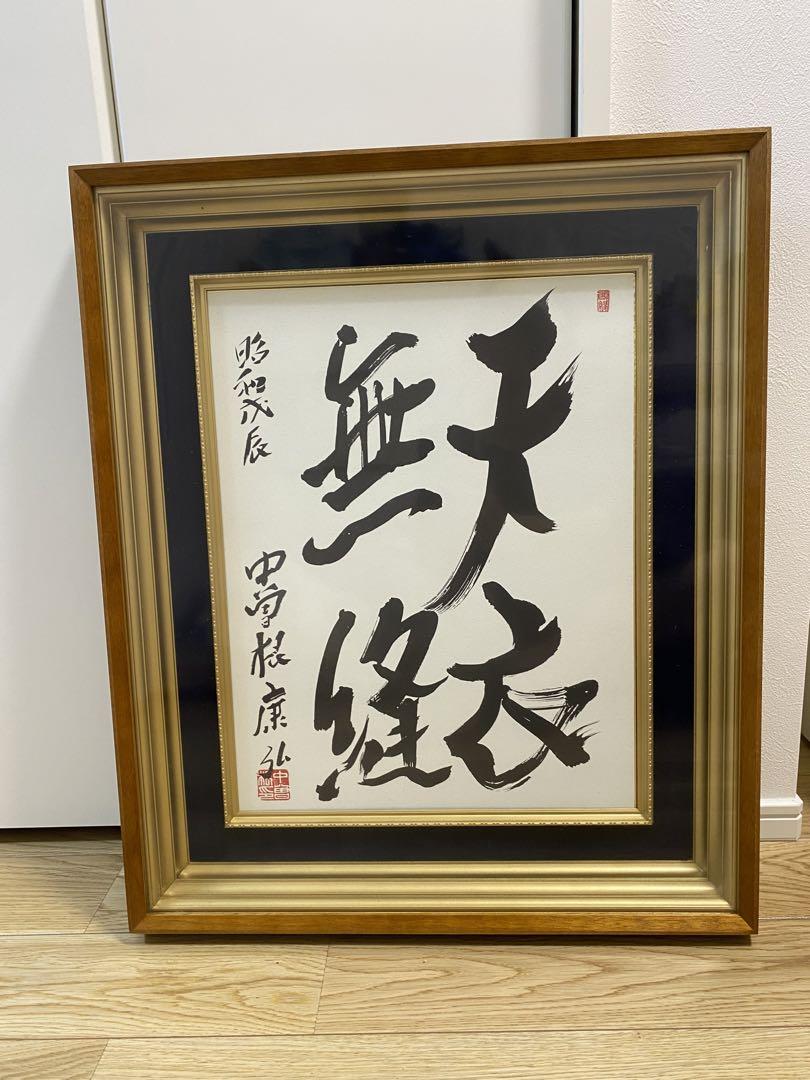 天衣
無縫
昭和戊辰
中曽根康弘